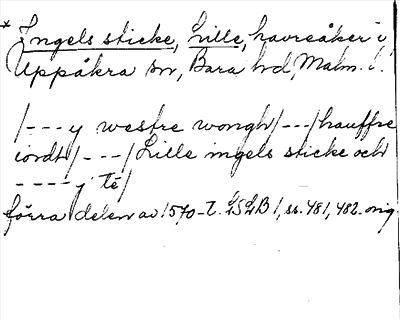 * Ingels sticke, Lille, havreåker i
Uppåkra sn, Bara hd, Malm. l.
/---y westre wongh/---/hauffre
iordt/---/Lille ingels sticke och
----y té/
förra delen av 1570-t. LSLB 1, ss. 481, 482. orig.